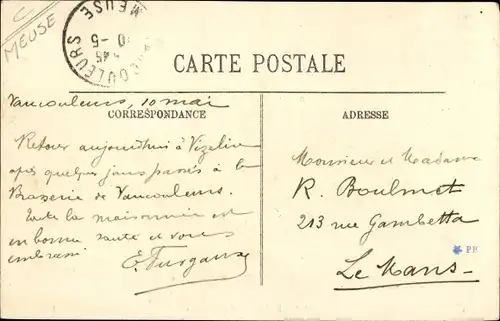 MEUSE
VAUCOULEURS
MEUSE
10-5
CARTE POSTALE
Vaucouleurs, 10 mai
CORRESPONDANCE
ADRESSE
Retour aujourd'hui à Vézelise
après quelques jours passés à la
Brasserie de Vaucouleurs.
Toute la maisonnée est
en bonne santé et vous
embrasse
Monsieur et Madame
R. Boulmet
213 rue Gambetta
Le Mans
PE